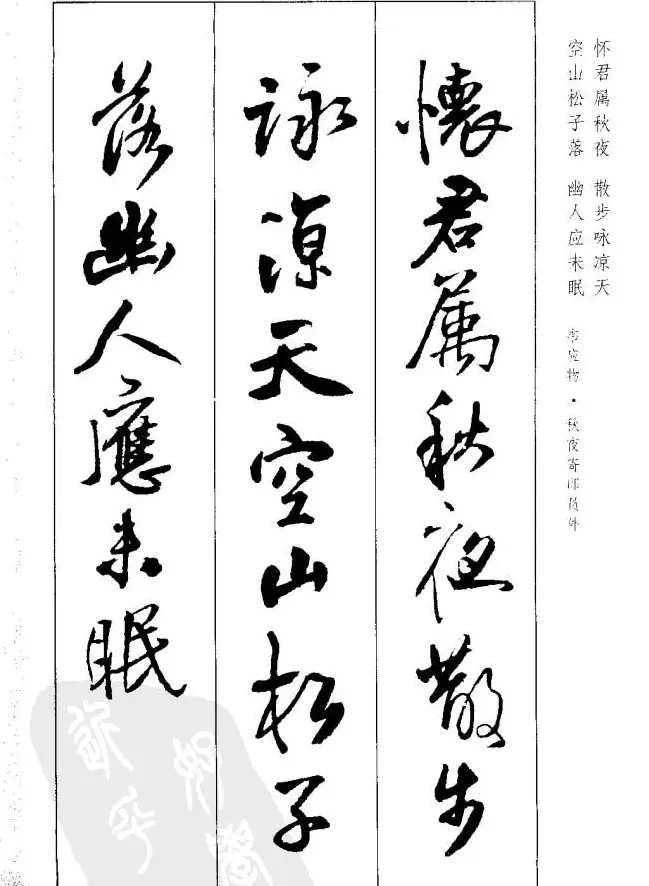 怀君属秋夜 散步咏凉天
空山松子落 幽人应未眠
韦应物·秋夜寄邱员外
懷君属秋夜散步
詠涼天空山松子
落幽人應未眠